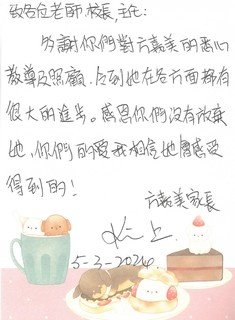 致各位老師,校長,主任:
多謝你們對方嘉美的悉心
教導及照顧,令到她在各方面都有
很大的進步。感恩你們沒有放棄
她,你們的愛我相信她會感受
得到的!
方嘉美家長
上
5-3-2026